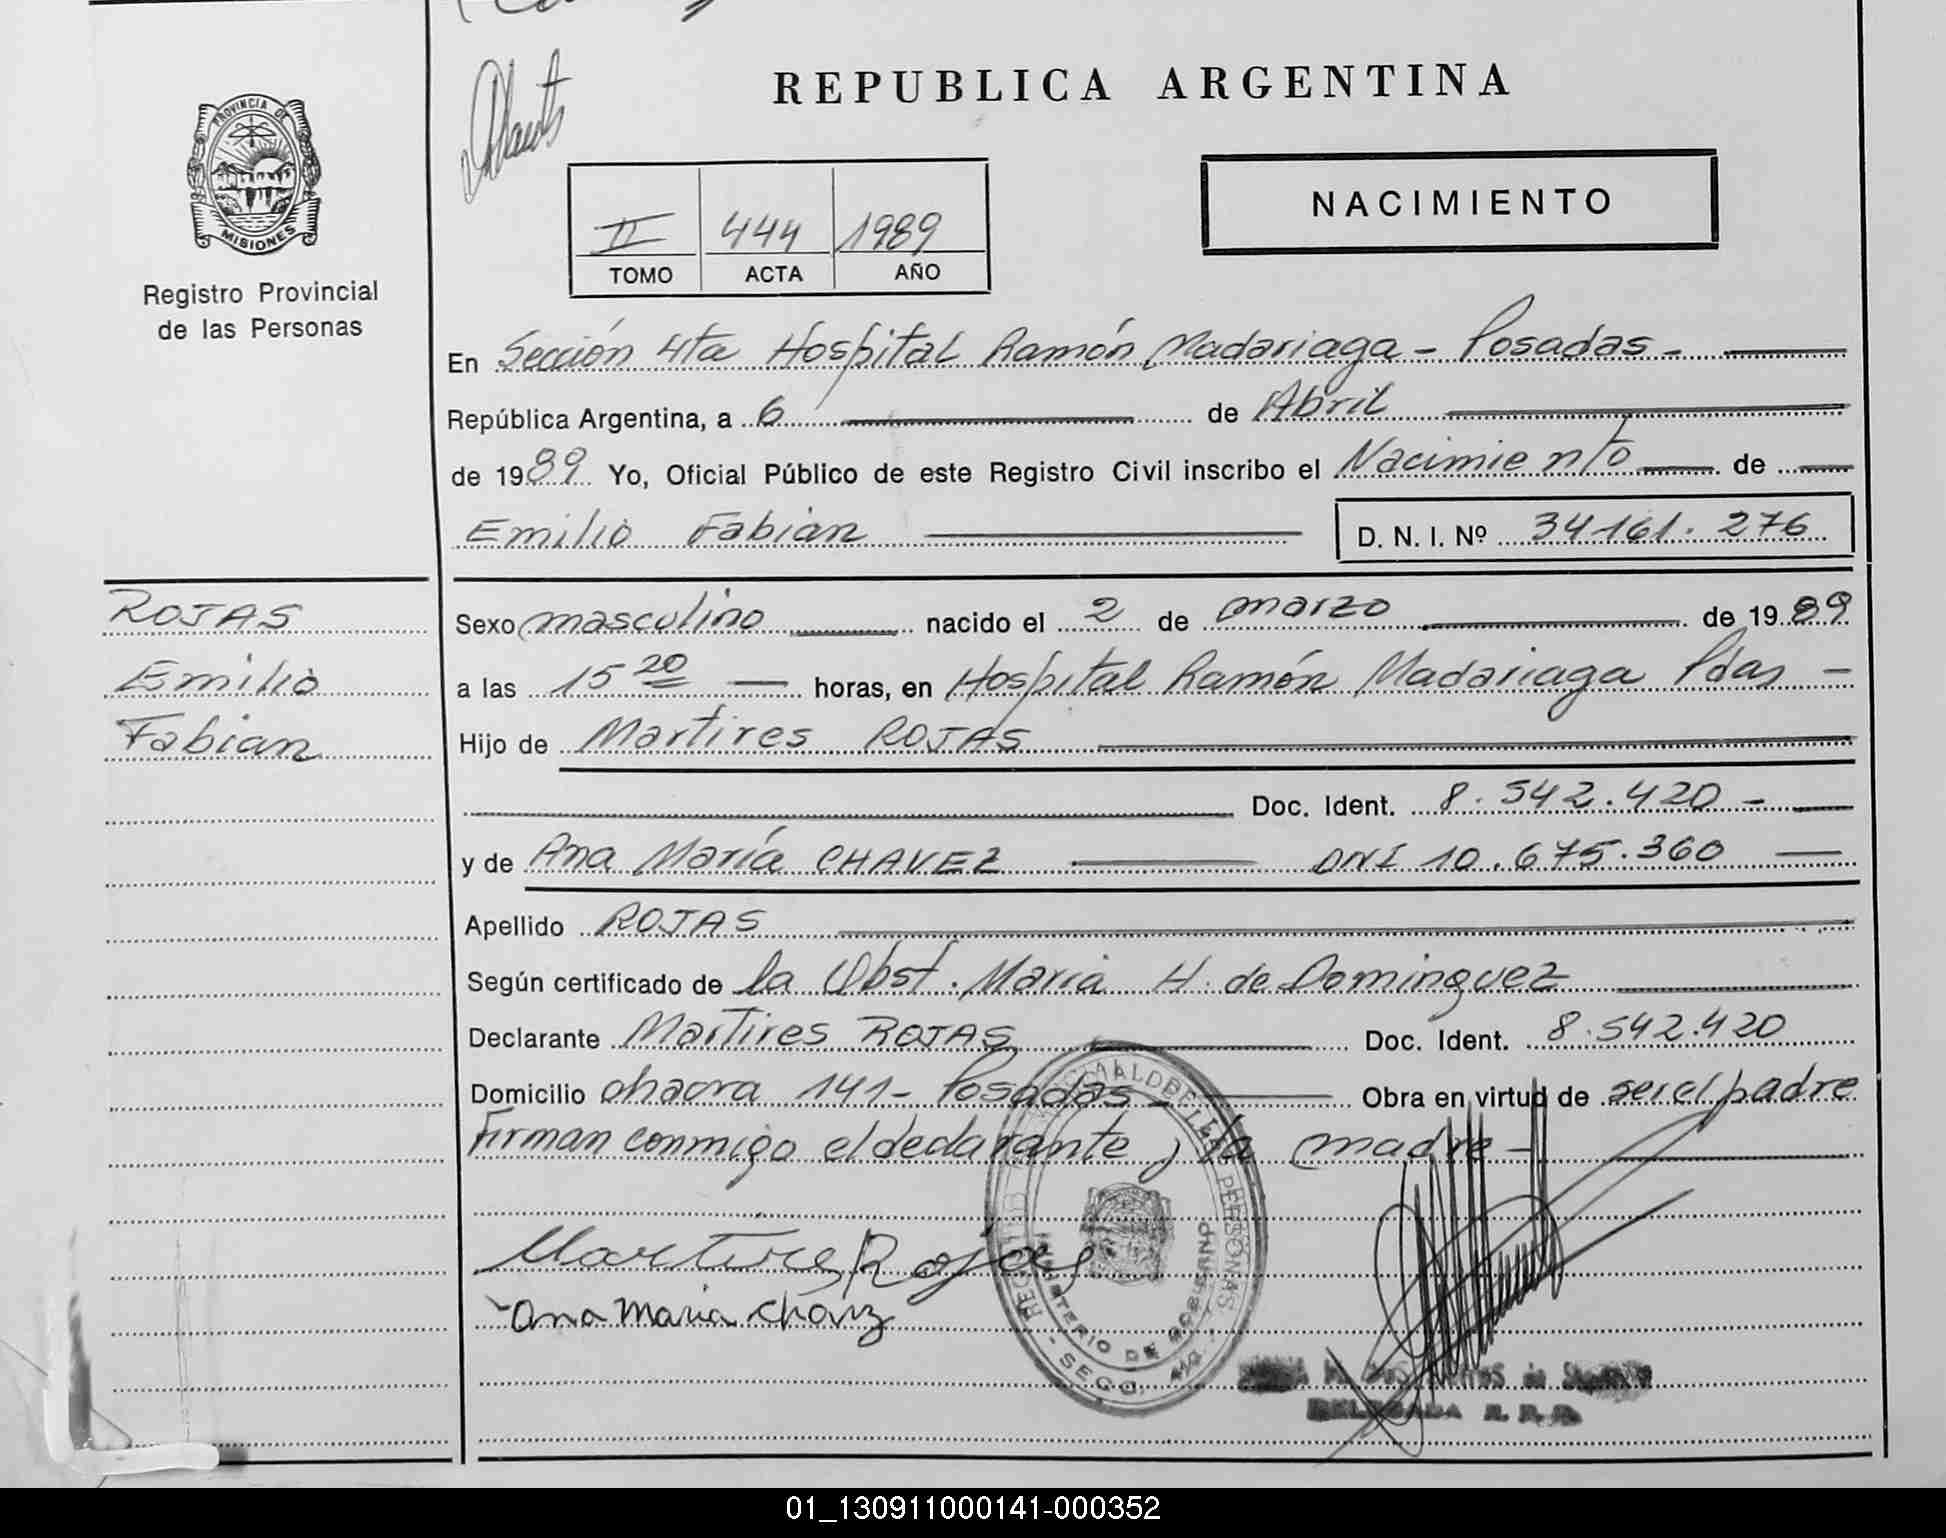 REPUBLICA ARGENTINA
PROVINCIA DE
MISIONES
Registro Provincial
de las Personas
NACIMIENTO
II 444 1989
TOMO ACTA AÑO
En Sección 4ta Hospital Ramón Madariaga - Posadas -
República Argentina, a 6 de Abril
de 1989 Yo, Oficial Público de este Registro Civil inscribo el Nacimiento de
Emilio Fabian D. N. I. Nº 34161.276
ROJAS
Emilio
Fabian
Sexo masculino nacido el 2 de marzo de 1989
a las 15 20 horas, en Hospital Ramón Madariaga Pdas -
Hijo de Martires ROJAS
Doc. Ident. 8.542.420 -
y de Ana María CHAVEZ DNI 10.675.360
Apellido ROJAS
Según certificado de la Obst. Maria H. de Dominguez
Declarante Martires ROJAS Doc. Ident. 8.542.420
Domicilio chacra 141 - Posadas - Obra en virtud de ser el padre
Firman conmigo el declarante y la madre -
Martires Rojas
Ana Maria Chavz
MINISTERIO DE GOBIERNO
DELEGADA R. P. P.
01_130911000141-000352